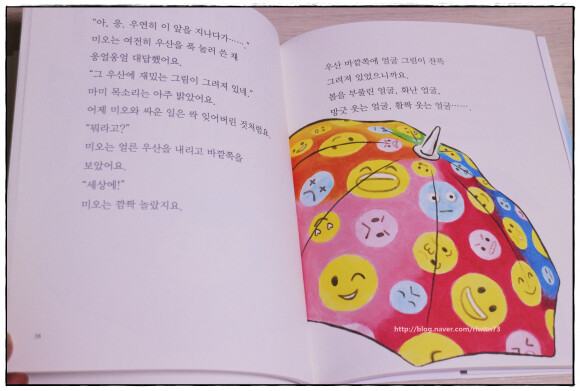 “아, 응. 우연히 이 앞을 지나다가…….”
미오는 여전히 우산을 푹 눌러 쓴 채
웅얼웅얼 대답했어요.
“그 우산에 재밌는 그림이 그려져 있네.”
마미 목소리는 아주 밝았어요.
어제 미오와 싸운 일은 싹 잊어버린 것처럼요.
“뭐라고?”
미오는 얼른 우산을 내리고 바깥쪽을
보았어요.
“세상에!”
미오는 깜짝 놀랐지요.
우산 바깥쪽에 얼굴 그림이 잔뜩
그려져 있었으니까요.
볼을 부풀린 얼굴, 화난 얼굴,
방긋 웃는 얼굴, 활짝 웃는 얼굴…….